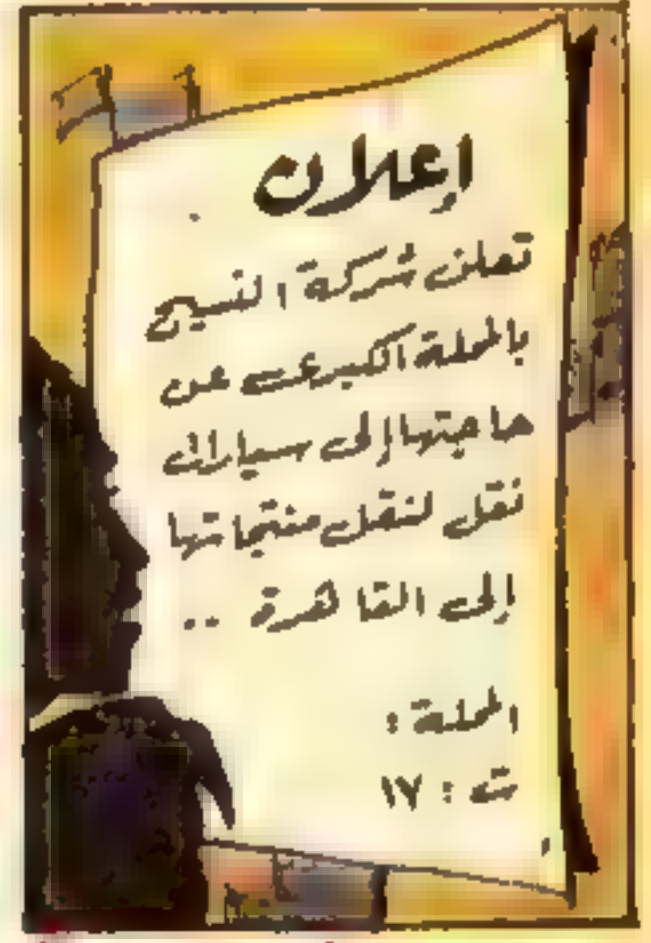 إعلان
تعلن شركة النسيج
بالمحلة الكبرى عن
حاجتها إلى سيارات
نقل لنقل منتجاتها
إلى القاهرة ..
المحلة :
ت : ١٧